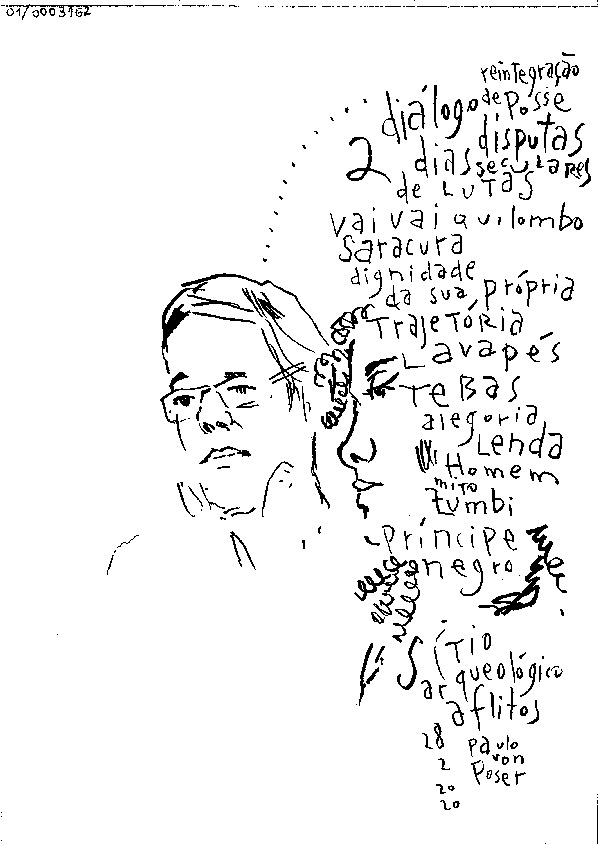 01/0003162
reintegração
diálogo de posse
2 dias disputas
seculares
de LUTAS
vai vai quilombo
Saracura
dignidade
da sua própria
TrajeTÓRia
Lavapés
TeBAS
alegoria
Lenda
Homem
miTo
zumbi
príncipe
negro
SíTio
arqueológico
aflitos
28 paulo
2 von
20 Poser
20